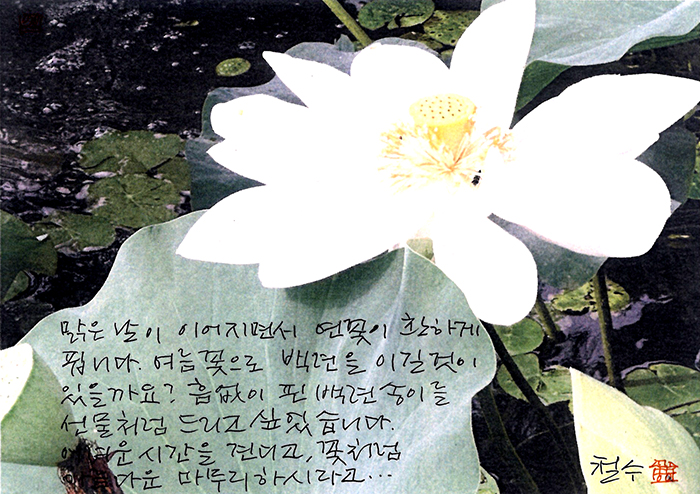 맑은 날이 이어지면서 연꽃이 환하게
핍니다. 여름꽃으로 백련을 이길것이
있을까요? 흠없이 핀 백련 송이를
선물처럼 드리고 싶었습니다.
시간을 견디고, 꽃처럼
아름다운 마무리하시라고...
철수